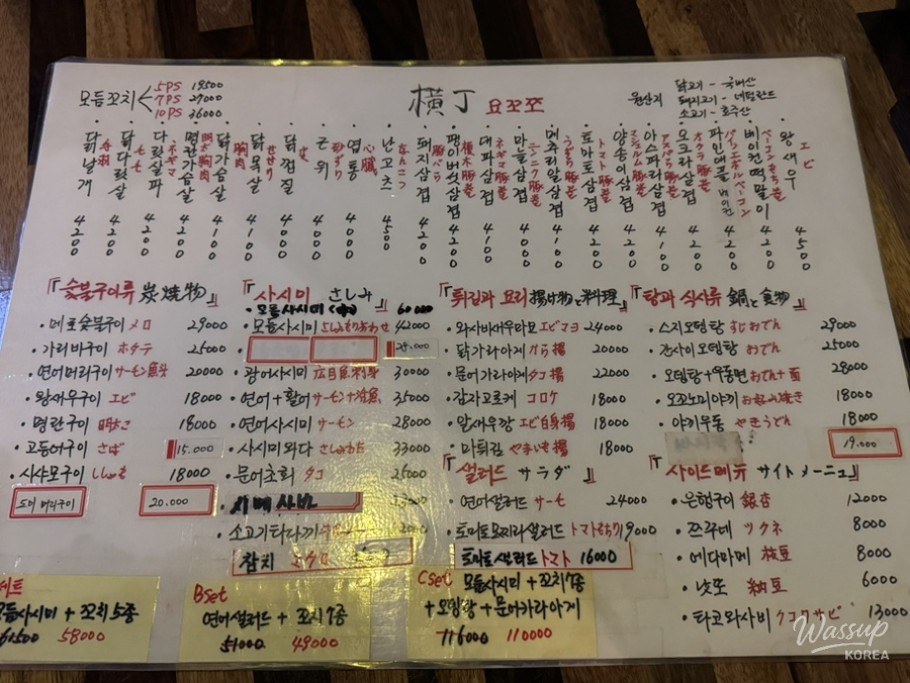 모듬꼬치 5PS 19500
7PS 27000
10PS 36000
横丁 요꼬쪼
원산지
닭고기 - 국내산
돼지고기 - 네덜란드
소고기 - 호주산
닭날개 手羽 4200
닭다리살 もも 4200
다릿살파 ネギマ 4200
명란가슴살 明太胸肉 4200
닭가슴살 胸肉 4100
닭목살 せせり 4100
닭껍질 皮 4000
근위 砂ずり 4000
염통 心臓 4000
난고츠 なんこつ 4500
돼지삼겹 豚バラ 4200
팽이버섯삼겹 4200
대파삼겹 ネギマ豚巻 4100
마늘삼겹 ニンニク豚巻 4200
메추리알삼겹 うずら豚巻 4100
토마토삼겹 トマト豚巻 4200
양송이삼겹 4200
아스파라삼겹 アスパラ豚巻 4100
오크라삼겹 オクラ豚巻 4200
파인애플베이컨 パイナップルベーコン 4200
베이컨떡말이 4200
왕새우 エビ 4500
『숯불구이류 炭焼物』
・메로숯불구이 メロ 29000
・가리비구이 ホタテ 25000
・연어머리구이 サーモン魚身 20000
・왕새우구이 エビ 18000
・명란구이 明太こ 18000
・고등어구이 さば 15.000
・시샤모구이 18000
도미 머리구이 20.000
『사시미 さしみ』
・모듬사시미 60000
・모듬사시미 さしみもりあわせ 42000
・광어사시미 広目魚刺身 30000
・연어+활어 サーモン+活魚 35000
・연어사시미 サーモン 28000
・사시미와다 33000
・문어초회 タコ 25000
・시메사바
・소고기타다끼
참치 マグロ
『튀김과 요리 揚げ物と料理』
・와사비새우마요 エビマヨ 24000
・닭가라아게 から揚 20000
・문어가라아게 タコ揚 22000
・감자고로케 コロケ 18000
・왕새우깡 エビ白身揚 18000
・마튀김 やまいも揚 18000
『샐러드 サラダ』
・연어샐러드 サーモ 24000
・토마토모짜렐라샐러드 9000
토마토샐러드 トマト 16000
『탕과 식사류 鍋と食物』
・스지오뎅탕 すじおでん 29000
・간사이오뎅탕 おでん 25000
・오뎅탕+우동면 おでん+面 28000
・오꼬노미야끼 お好み焼き 18000
・야끼우동 やきうどん 18000
19.000
『사이드메뉴 サイトメーニュ』
・은행구이 銀杏 12000
・쯔쿠네 ツクネ 8000
・에다마메 枝豆 8000
・낫또 納豆 6000
・타코와사비 タコワサビ 13000
세트
모듬사시미 + 꼬치 5종
61500 58000
Bset
연어샐러드 + 꼬치7종
51000 49000
Cset 모듬사시미 + 꼬치7종
+ 오뎅탕 + 문어가라아게
116000 110000
Wassup
KOREA